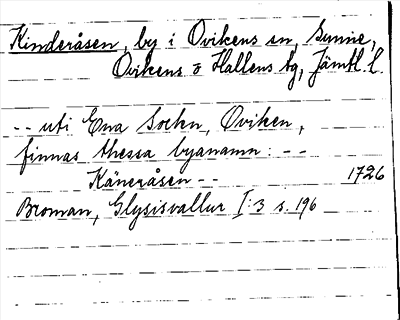 Kinderåsen, by i Ovikens sn, Sunne,
Ovikens o Hallens tg, Jämtl. l.
-- uti Ena Sockn, Oviken,
finnas thessa byanamn: --
Käneråsen -- 1726
Broman, Glysisvallur I:3 s. 196